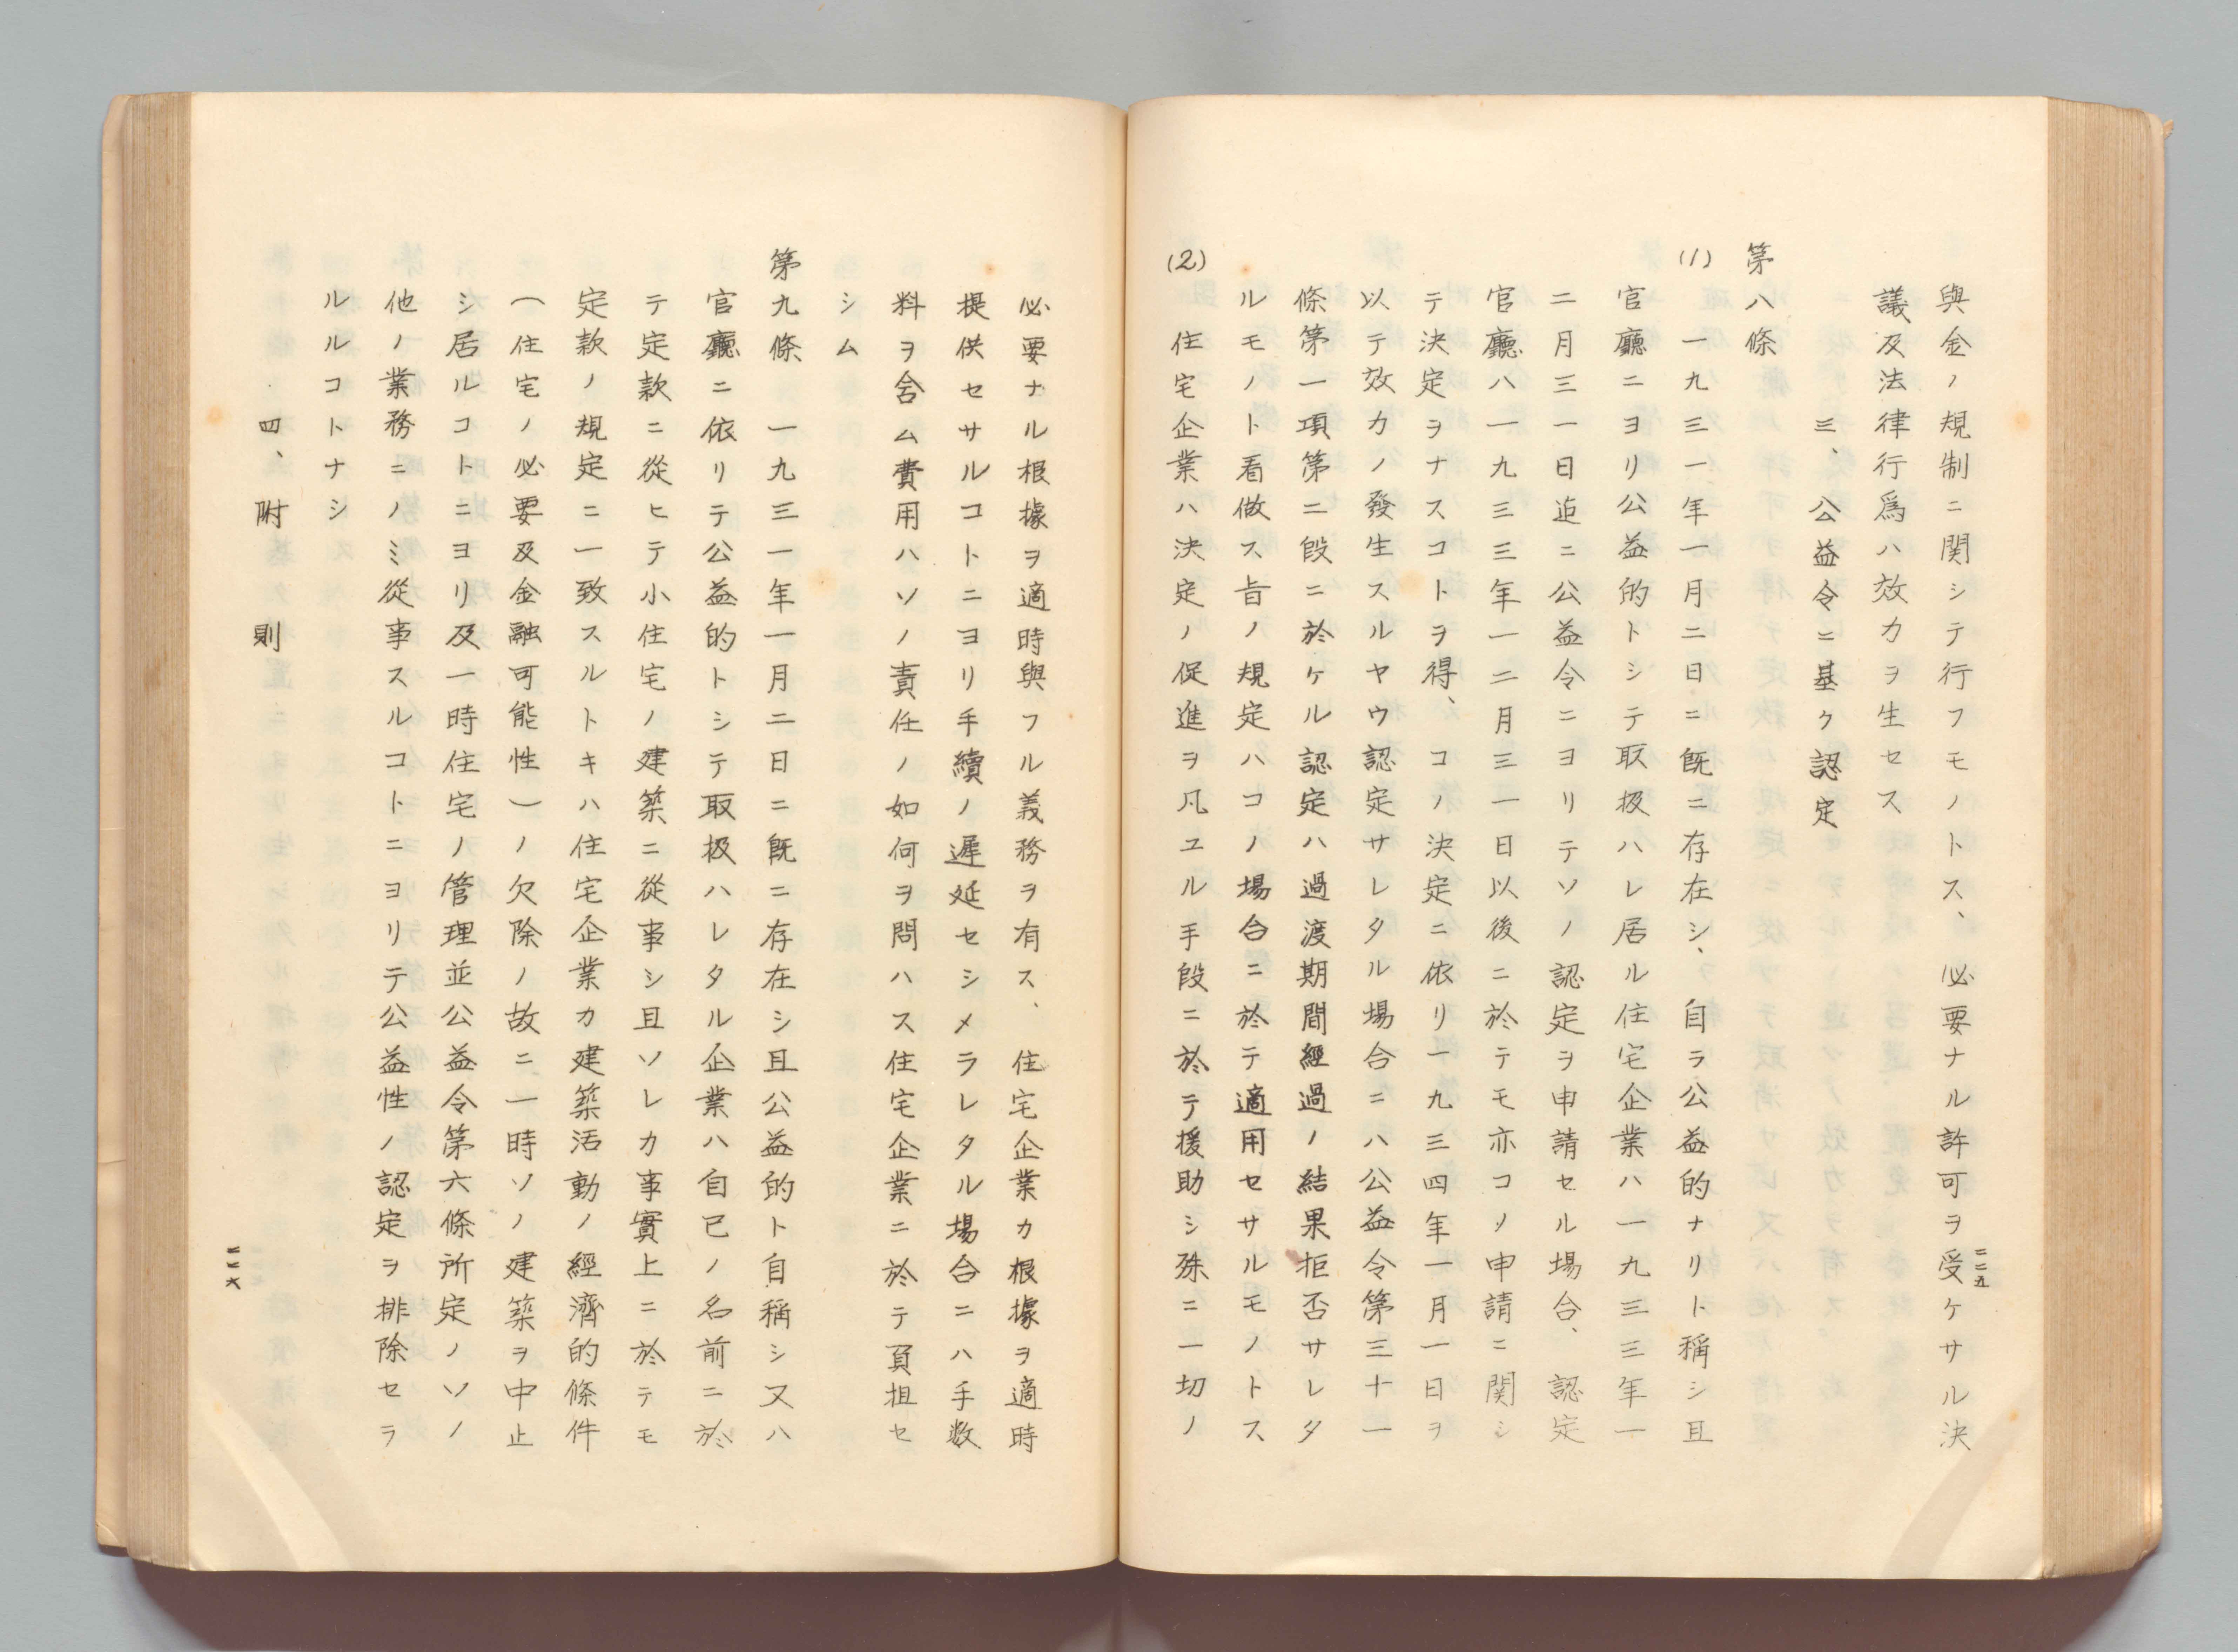 與金ノ規制ニ関シテ行フモノトス、必要ナル許可ヲ受ケサル決
議及法律行爲ハ效力ヲ生セス
三、公益令ニ基ク認定
第八條
(1) 一九三一年一月二日ニ既ニ存在シ、自ラ公益的ナリト稱シ且
官廳ニヨリ公益的トシテ取扱ハレ居ル住宅企業ハ一九三三年一
二月三一日迄ニ公益令ニヨリテソノ認定ヲ申請セル場合、認定
官廳ハ一九三三年一二月三一日以後ニ於テモ亦コノ申請ニ関シ
テ決定ヲナスコトヲ得、コノ決定ニ依リ一九三四年一月一日ヲ
以テ效力ノ發生スルヤウ認定サレタル場合ニハ公益令第三十一
條第一項第二段ニ於ケル認定ハ過渡期間經過ノ結果拒否サレタ
ルモノト看做ス旨ノ規定ハコノ場合ニ於テ適用セサルモノトス
(2) 住宅企業ハ決定ノ促進ヲ凡ユル手段ニ於テ援助シ殊ニ一切ノ
二二五
必要ナル根據ヲ適時與フル義務ヲ有ス、住宅企業カ根據ヲ適時
提供セサルコトニヨリ手續ノ遲延セシメラレタル場合ニハ手数
料ヲ含ム費用ハソノ責任ノ如何ヲ問ハス住宅企業ニ於テ負担セ
シム
第九條 一九三一年一月二日ニ既ニ存在シ且公益的ト自稱シ又ハ
官廳ニ依リテ公益的トシテ取扱ハレタル企業ハ自已ノ名前ニ於
テ定款ニ從ヒテ小住宅ノ建築ニ從事シ且ソレカ事實上ニ於テモ
定款ノ規定ニ一致スルトキハ住宅企業カ建築活動ノ經濟的條件
(住宅ノ必要及金融可能性)ノ欠除ノ故ニ一時ソノ建築ヲ中止
シ居ルコトニヨリ及一時住宅ノ管理並公益令第六條所定ノソノ
他ノ業務ニノミ從事スルコトニヨリテ公益性ノ認定ヲ排除セラ
ルルコトナシ
四、附則
二二六